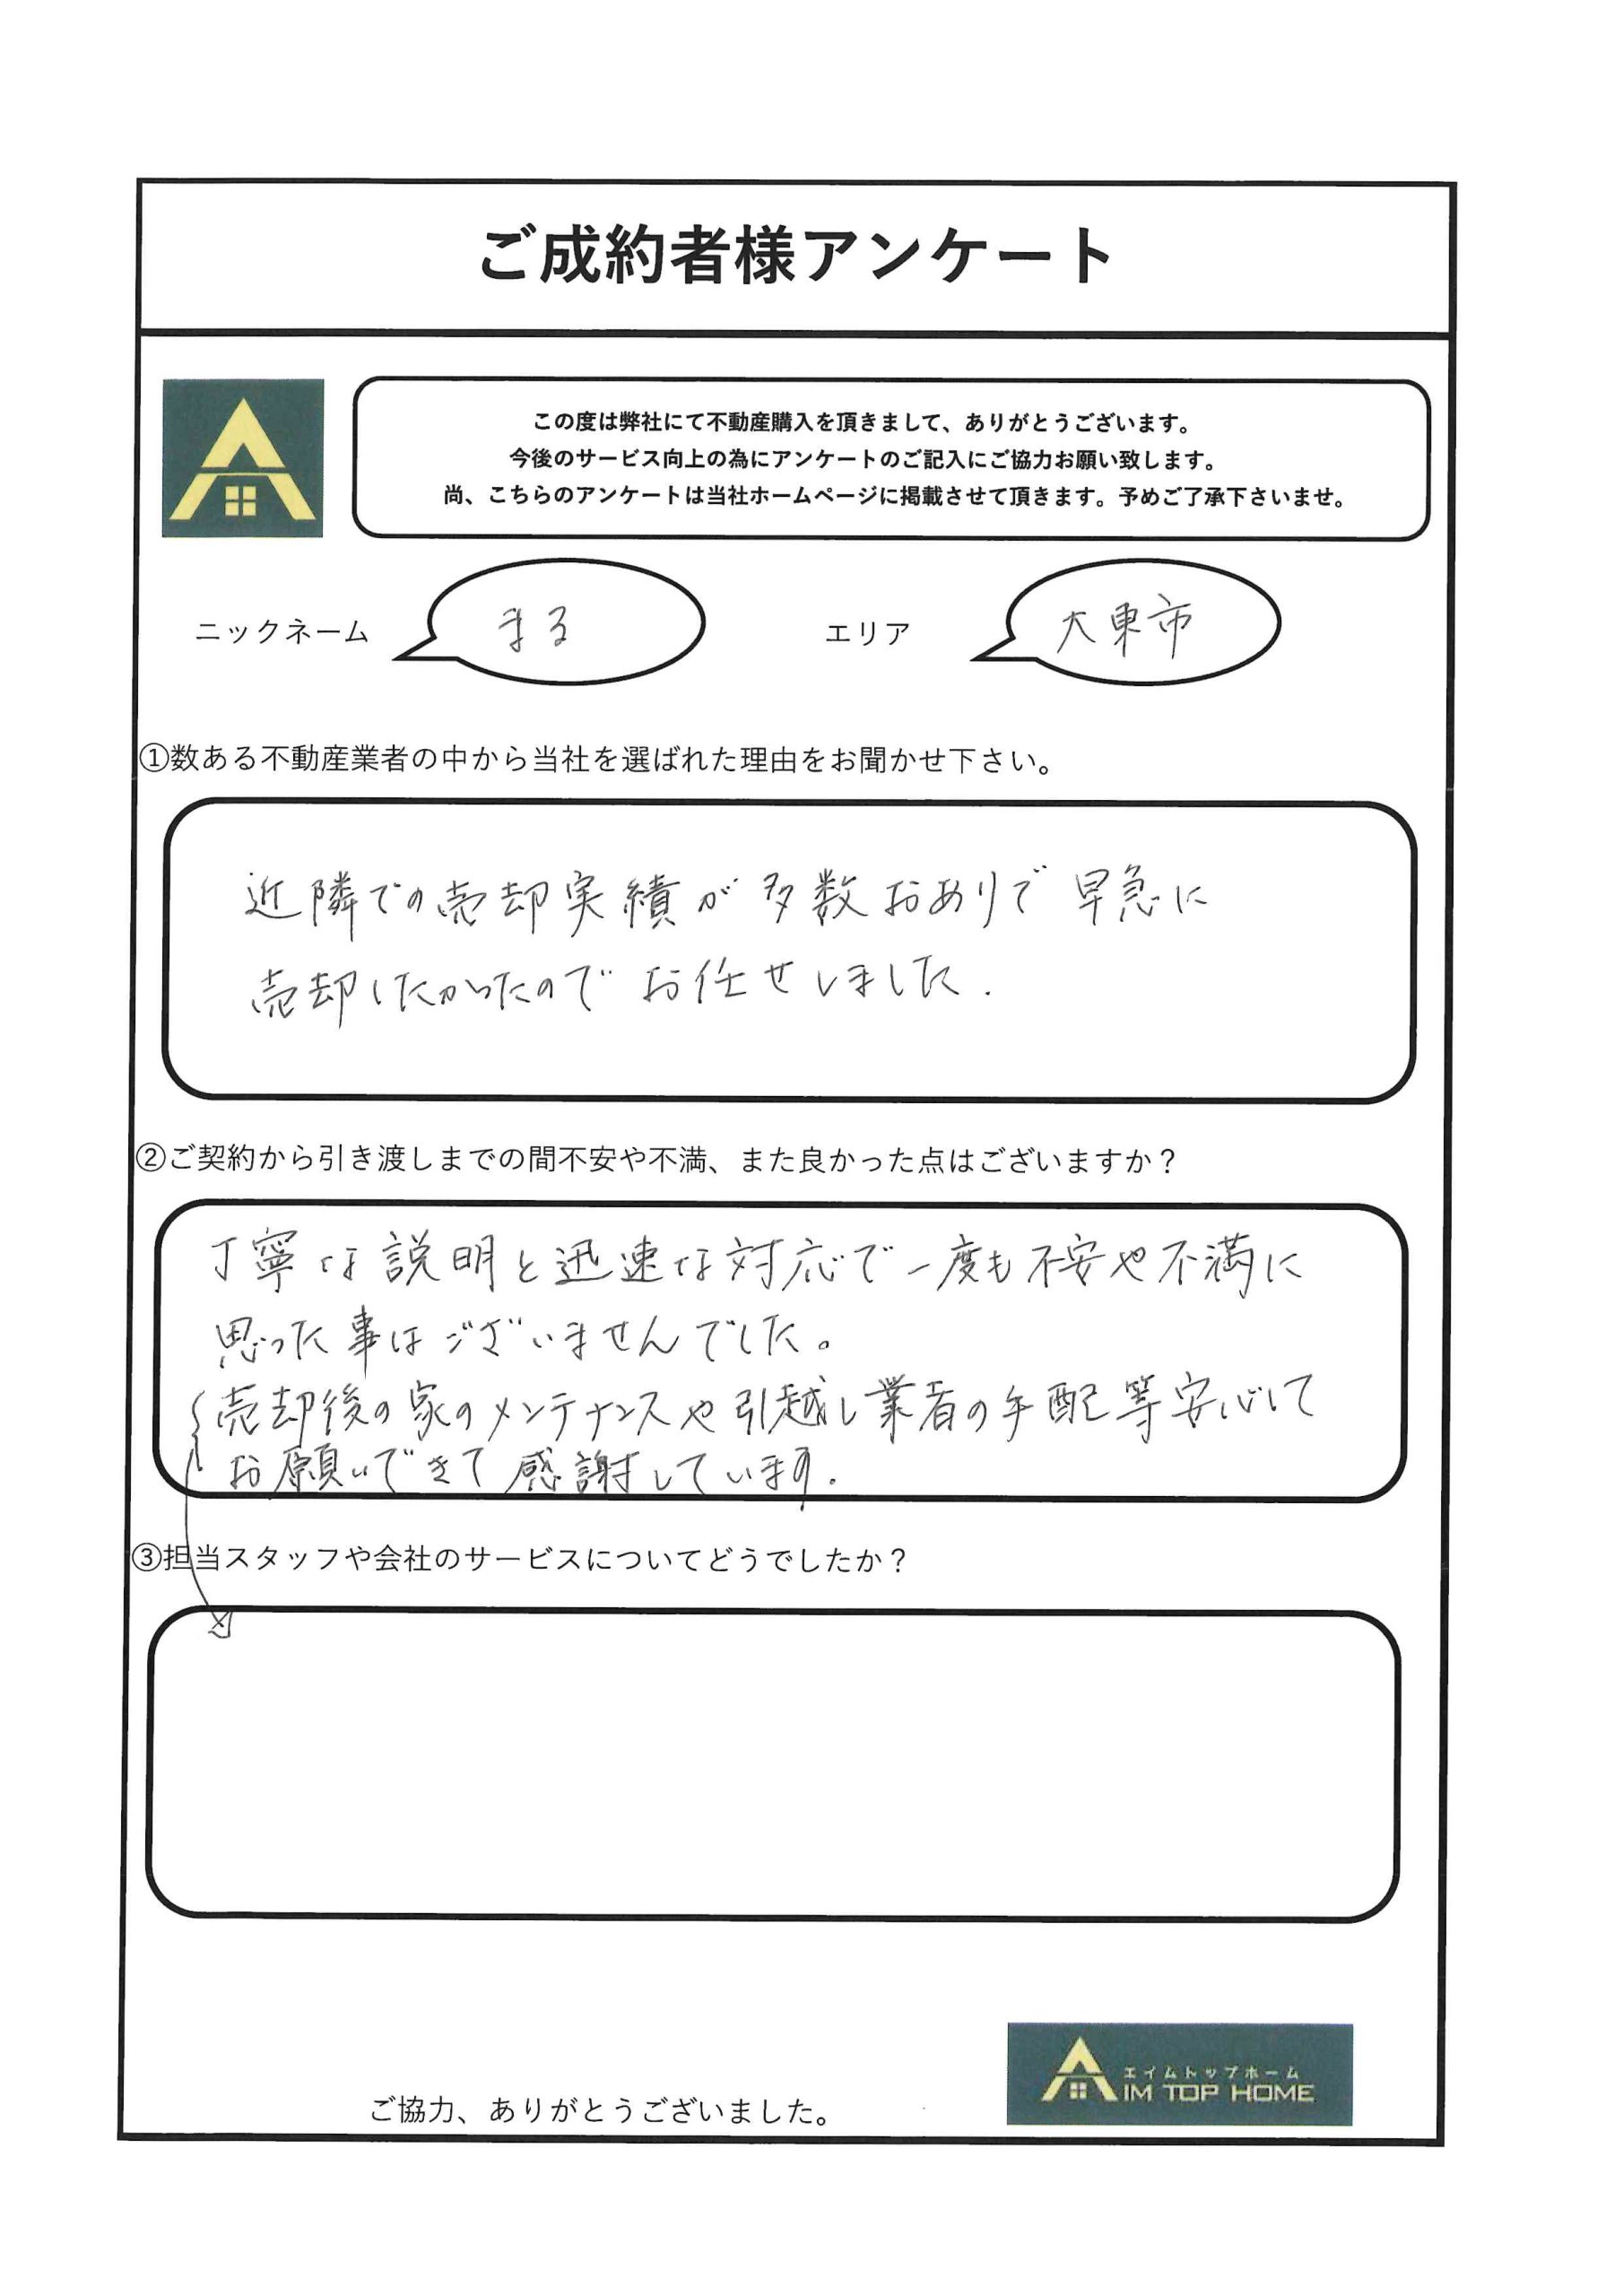 ご成約者様アンケート
この度は弊社にて不動産購入を頂きまして、ありがとうございます。
今後のサービス向上の為にアンケートのご記入にご協力お願い致します。
尚、こちらのアンケートは当社ホームページに掲載させて頂きます。予めご了承下さいませ。
ニックネーム まる エリア 大東市
①数ある不動産業者の中から当社を選ばれた理由をお聞かせ下さい。
近隣での売却実績が多数おありで早急に
売却したかったのでお任せしました.
②ご契約から引き渡しまでの間不安や不満、また良かった点はございますか？
丁寧な説明と迅速な対応で一度も不安や不満に
思った事はございませんでした。
売却後の家のメンテナンスや引越し業者の手配等安心して
お願いできて感謝しています.
③担当スタッフや会社のサービスについてどうでしたか？
エイムトップホーム
AIM TOP HOME
ご協力、ありがとうございました。